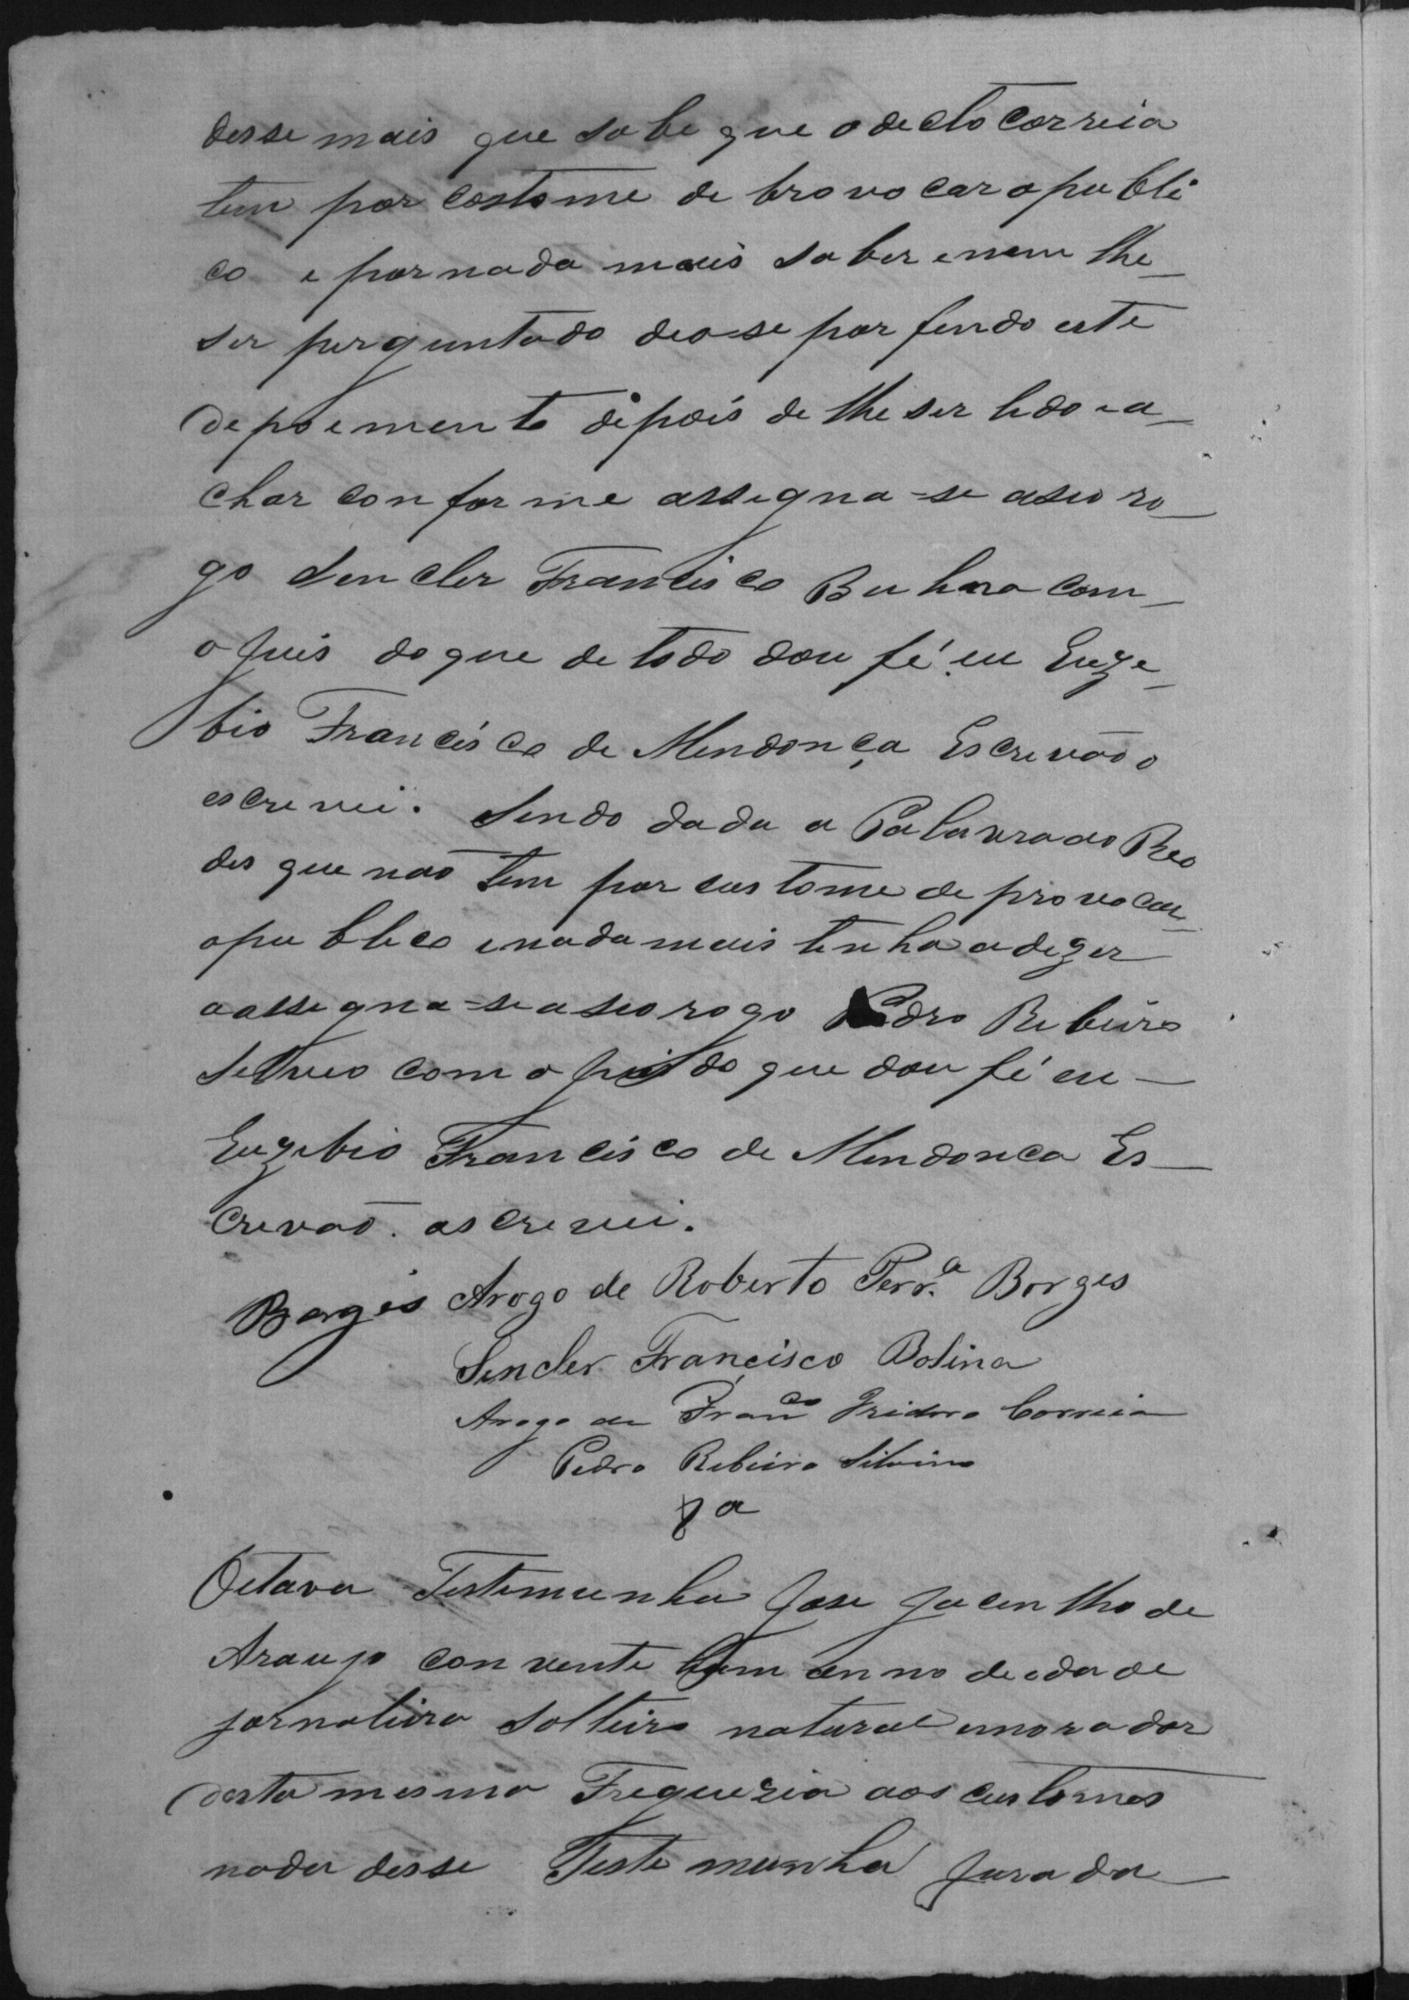 desse mais que sabe que o decto Correia
tem por costome de brovocar o publi
co e por nada mais saber e nem lhe
ser perguntado deo-se por findo este
depoemento depois de lhe ser lido e a-
char conforme assegna-se a seo ro-
go Sencler Francisco Buhna com
o Juis do que de todo dou fé. eu Euze-
bio Francisco de Mendonça Escrevão o
escrevi. Sendo dada a Palavra ao Reo
des que não tem por custome de provocar
o publico e nada mais tenha a dezer
a assegna-se a seo rogo Pedro Ribeiro
Selvino com o Juis do que dou fé eu
Euzebio Francisco de Mendonca Es-
crevão. escrevi.
Borges Arogo de Roberto Ferr.a Borges
Sencler Francisco Bolina
Arogo de Franco Izidoro Correia
Pedro Ribeiro Silvino
8a
Oitava Testemunha Jose Jacintho de
Araujo con vente hum anno de edade
jornaleiro Solteiro natural e morador
desta mesma Freguezia aos custumes
nada desse Testemunha Jurada